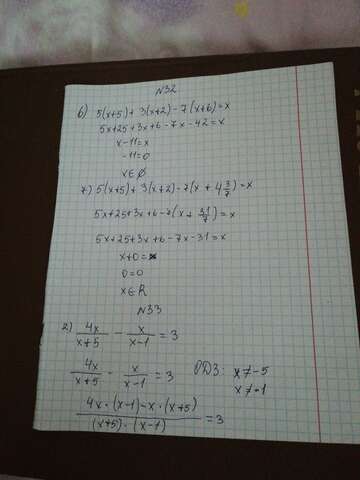 N32
6) 5(x+5)+3(x+2)-7(x+6)=x
5x+25+3x+6-7x-42=x
x-11=x
-11=0
x∈Ø
7) 5(x+5)+3(x+2)-7(x+4 3/7)=x
5x+25+3x+6-7(x+31/7)=x
5x+25+3x+6-7x-31=x
x+0=x
0=0
x∈R
N33
2) 4x/(x+5) - x/(x-1) = 3
4x/(x+5) - x/(x-1) = 3 ОДЗ: x≠-5
x≠-1
(4x·(x-1)-x·(x+5))/((x+5)·(x-1)) = 3